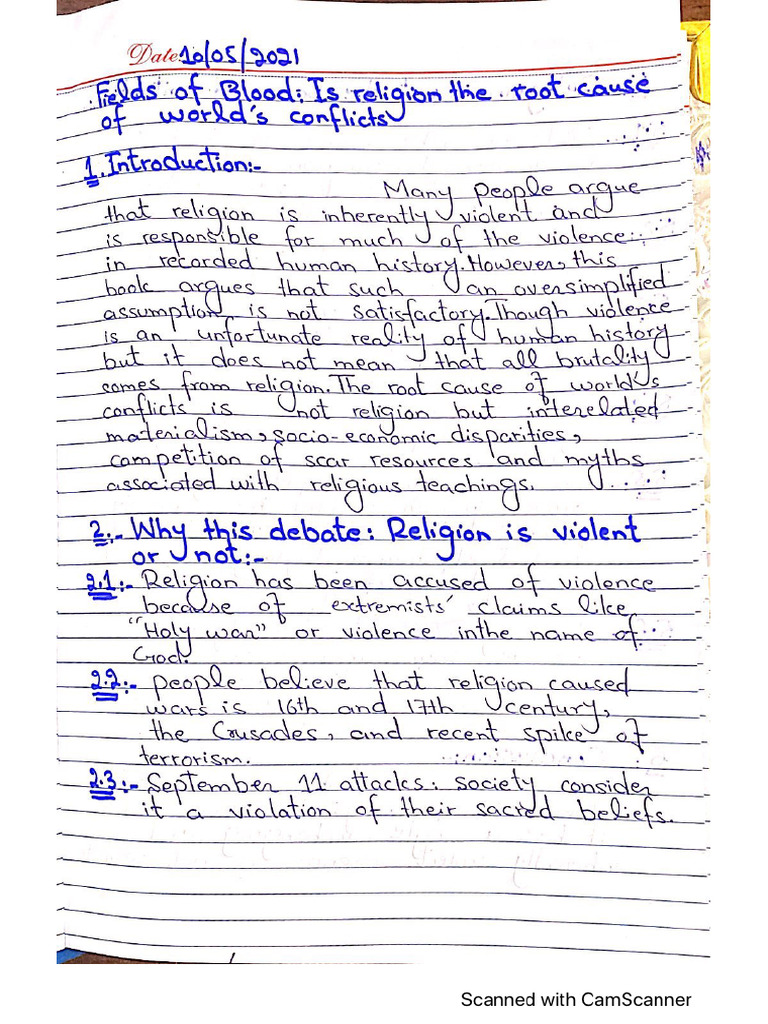 Date: 10/05/2021
Fields of Blood: Is religion the root cause
of world's conflicts
1. Introduction:-
Many people argue
that religion is inherently violent and
is responsible for much of the violence
in recorded human history. However, this
book argues that such an oversimplified
assumption is not satisfactory. Though violence
is an unfortunate reality of human history
but it does not mean that all brutality
comes from religion. The root cause of world's
conflicts is not religion but interelated
materialism, socio-economic disparities,
competition of scar resources and myths
associated with religious teachings.
2:- Why this debate: Religion is violent
or not:-
2.1:- Religion has been accused of violence
because of extremists' claims like
"Holy war" or violence inthe name of
God.
2.2:- people believe that religion caused
wars is 16th and 17th century,
the Crusades, and recent spike of
terrorism.
2.3:- September 11 attacks: society consider
it a violation of their sacred beliefs.
Scanned with CamScanner